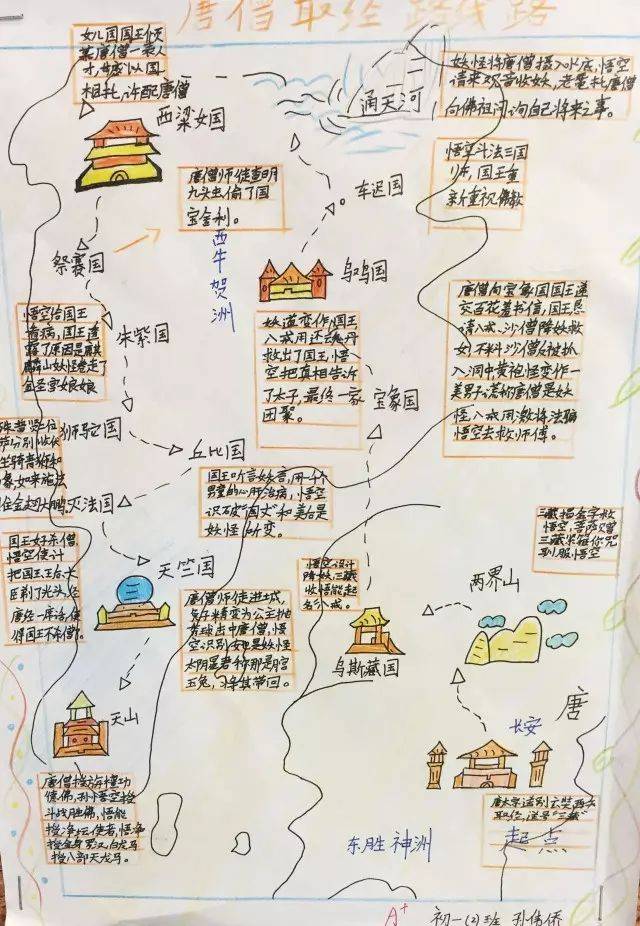 唐僧取经路线路
女儿国国王仰慕
某唐僧一表人
才,甘愿以国
相托,许配唐僧
西梁女国
二
通天河
妖怪将唐僧摄入水底,悟空
请来观音收妖,老鼋托唐僧
向佛祖问询自己将来之事。
唐僧师徒查明
九头虫偷了国
宝舍利。
车迟国
悟空斗法三国
师,国王重
新重视佛教
祭赛国
西牛贺洲
乌鸡国
悟空给国王
看病,国王透
露了原因是麒
麟山妖怪掳走了
金圣宫娘娘
朱紫国
妖道变作国王
八戒用还魂丹
救出了国王,悟
空把真相告诉
了太子,最终一家
团聚。
宝象国
唐僧向宝象国国王递
交百花羞书信,国王恳
请八戒、沙僧降妖救
女,不料沙僧反被抓
入洞中黄袍怪变作一
美男子谎称唐僧是妖
怪八戒用激将法骗
悟空去救师傅。
狮驼国
丘比国
国王听信妖言,用一千个
男童的心肝治病,悟空
识破"国丈"和美后是
妖怪所变。
灭法国
国王好杀僧
悟空使计
把国王、王后、大
臣剃了光头,
得国王不杀僧。
天竺国
三
唐僧师徒进城,
绣球击中唐僧,悟
空识别
太阴星君称那是月宫
玉兔,将其带回。
悟空设计
降妖,三藏
收悟能起
名八戒。
乌斯藏国
三藏揭金字救
悟空,菩萨又曾
三藏紧箍伽咒
制服悟空
两界山
天山
唐
长安
唐僧授旃檀功
德佛,孙悟空授
斗战胜佛,悟能
授净坛使者,悟净
授金身罗汉,白龙马
授八部天龙马。
取经,
起点
东胜神洲
A+
初一(2)班 孙伟侨